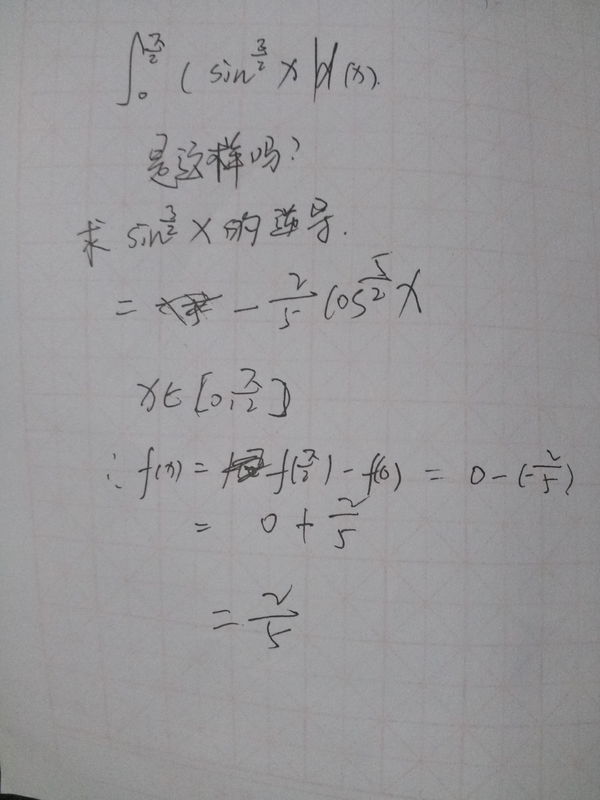 ∫₀^{π/2} (sin^{3/2} x)d(x).
是这样吗?
求 sin^{3/2} x 的逆导.
= -2/5 cos^{5/2} x
x∈[0,π/2]
∴ f(x) = f(π/2) - f(0) = 0-(-2/5)
= 0 + 2/5
= 2/5